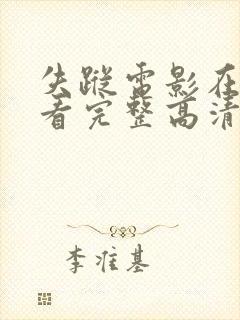 失踪雷影在
看完整高清
李准基